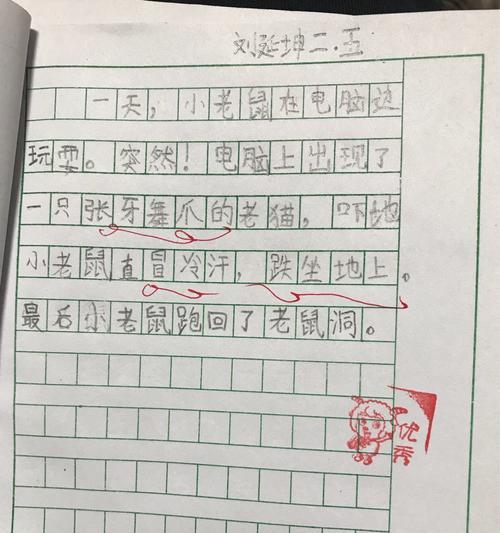 刘延坤二.五
一天，小老鼠在电脑边
玩耍。突然！电脑上出现了
一只张牙舞爪的老猫，吓地
小老鼠直冒冷汗，跌坐地上。
最后小老鼠跑回了老鼠洞。
优秀